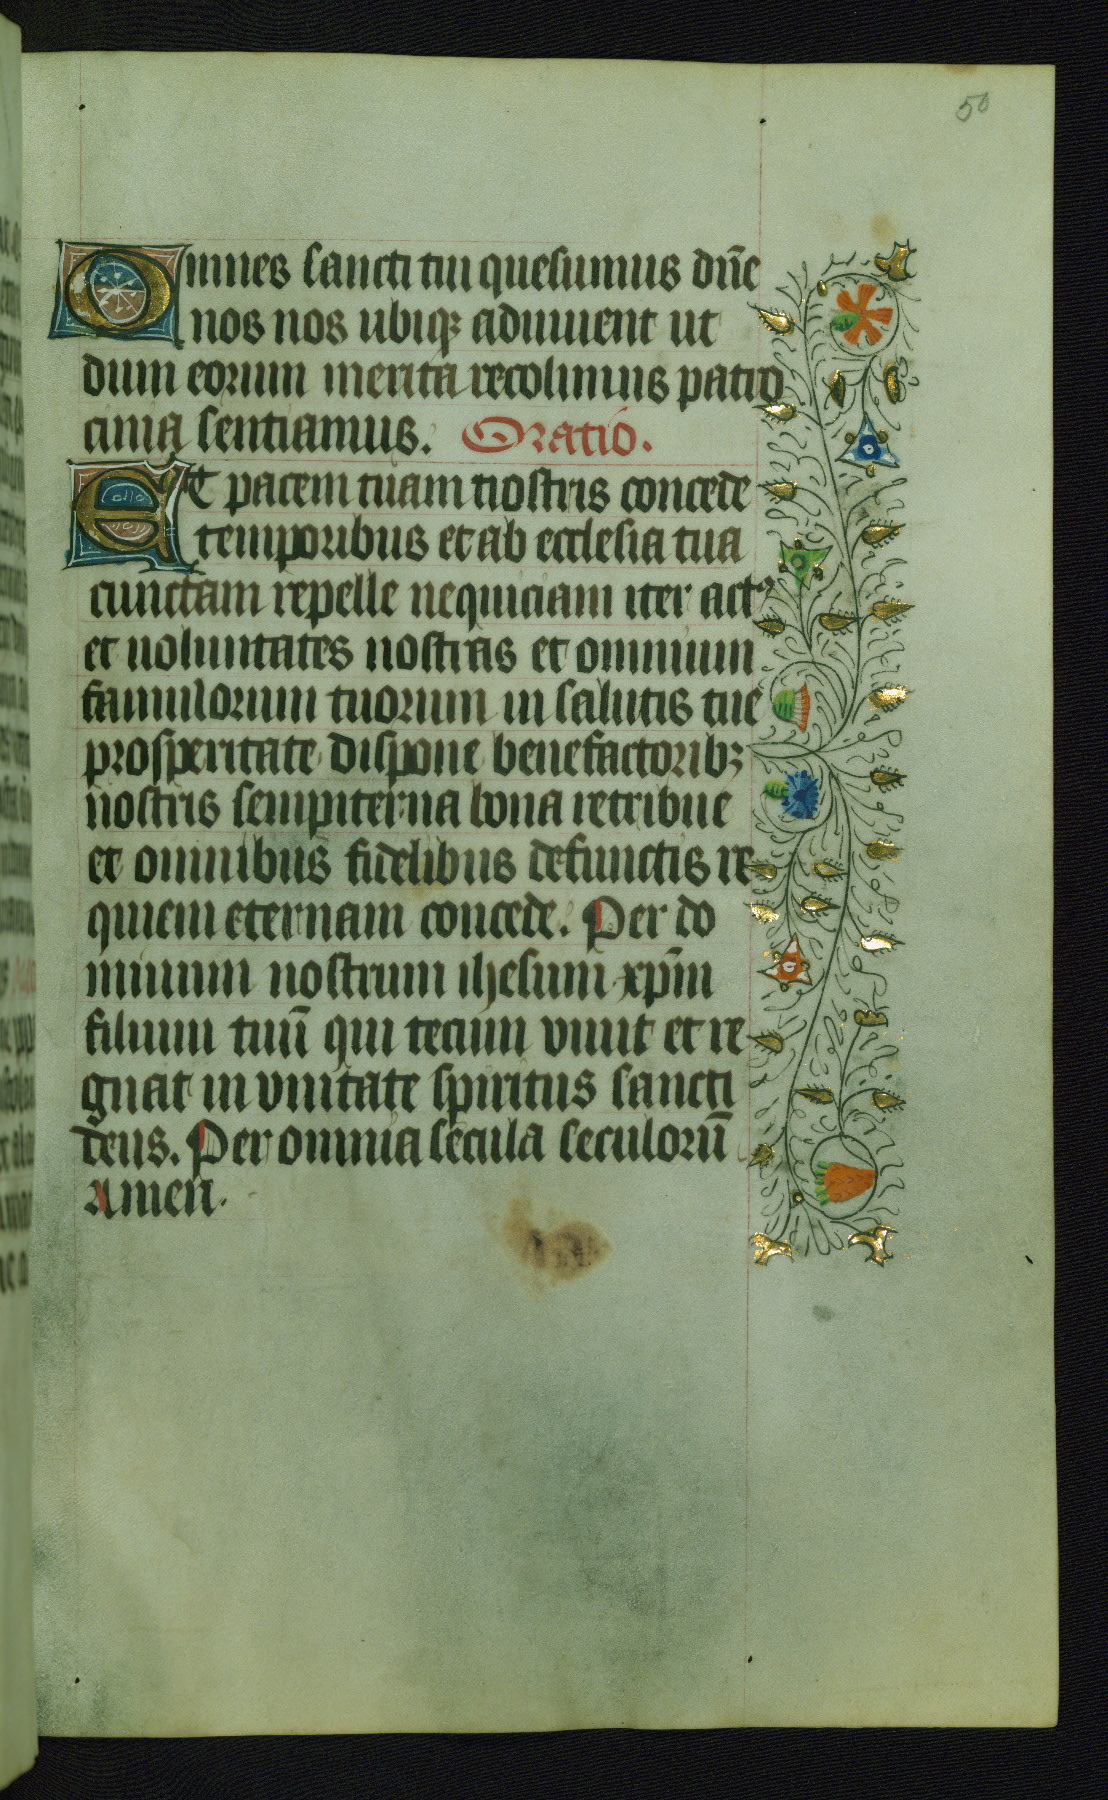 50
Omnes sancti tui quesumus dn̄e
nos nos ubiqꝫ adiuuent ut
dum eorum merita recolimus patro
cinia sentiamus. Oratio.
Et pacem tuam nostris concede
temporibus et ab ecclesia tua
cunctam repelle nequiciam iter actꝰ
et uoluntates nostras et omnium
famulorum tuorum in salutis tue
prosperitate dispone benefactoribꝫ
nostris sempiterna bona retribue
et omnibus fidelibus defunctis re
quiem eternam concede. Per do
minum nostrum ihesum xp̄m
filium tuū qui tecum viuit et re
gnat in vnitate spiritus sancti
deus. Per omnia secula seculorū
Amen.